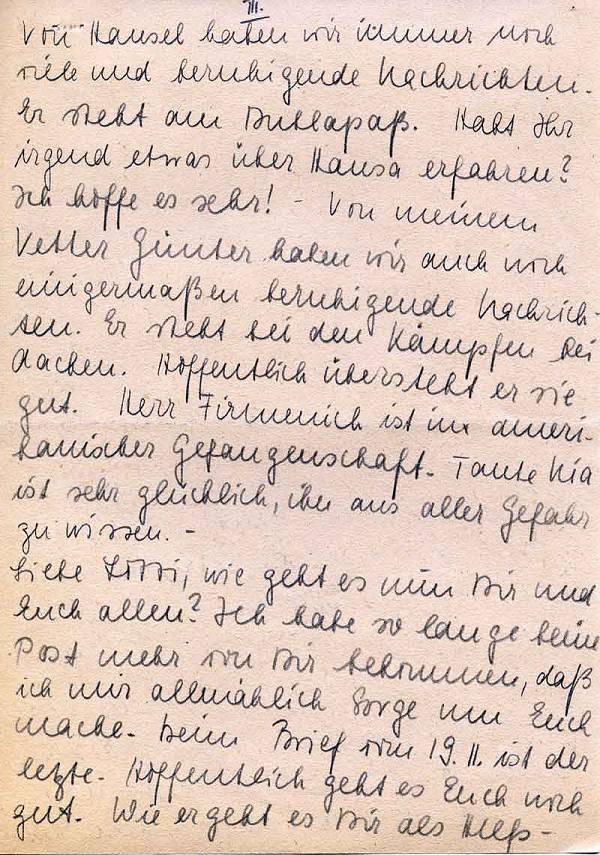 III.
Von Hansel haben wir immer noch
viele und beruhigende Nachrichten.
Er steht am Duklapaß. Habt Ihr
irgend etwas über Hansa erfahren?
Ich hoffe es sehr! - Von meinem
Vetter Günter haben wir auch noch
einigermaßen beruhigende Nachrich-
ten. Er steht bei den Kämpfen bei
Aachen. Hoffentlich übersteht er sie
gut. Herr Firmenich ist in ameri-
kanischer Gefangenschaft. Tante Mia
ist sehr glücklich, ihn aus aller Gefahr
zu wissen. -
Liebe, wie geht es nun Dir und
Euch allen? Ich habe so lange keine
Post mehr von Dir bekommen, daß
ich mir allmählich Sorge um Euch
mache. Dein Brief vom 19. II. ist der
letzte. Hoffentlich geht es Euch noch
gut. Wie ergeht es Dir als